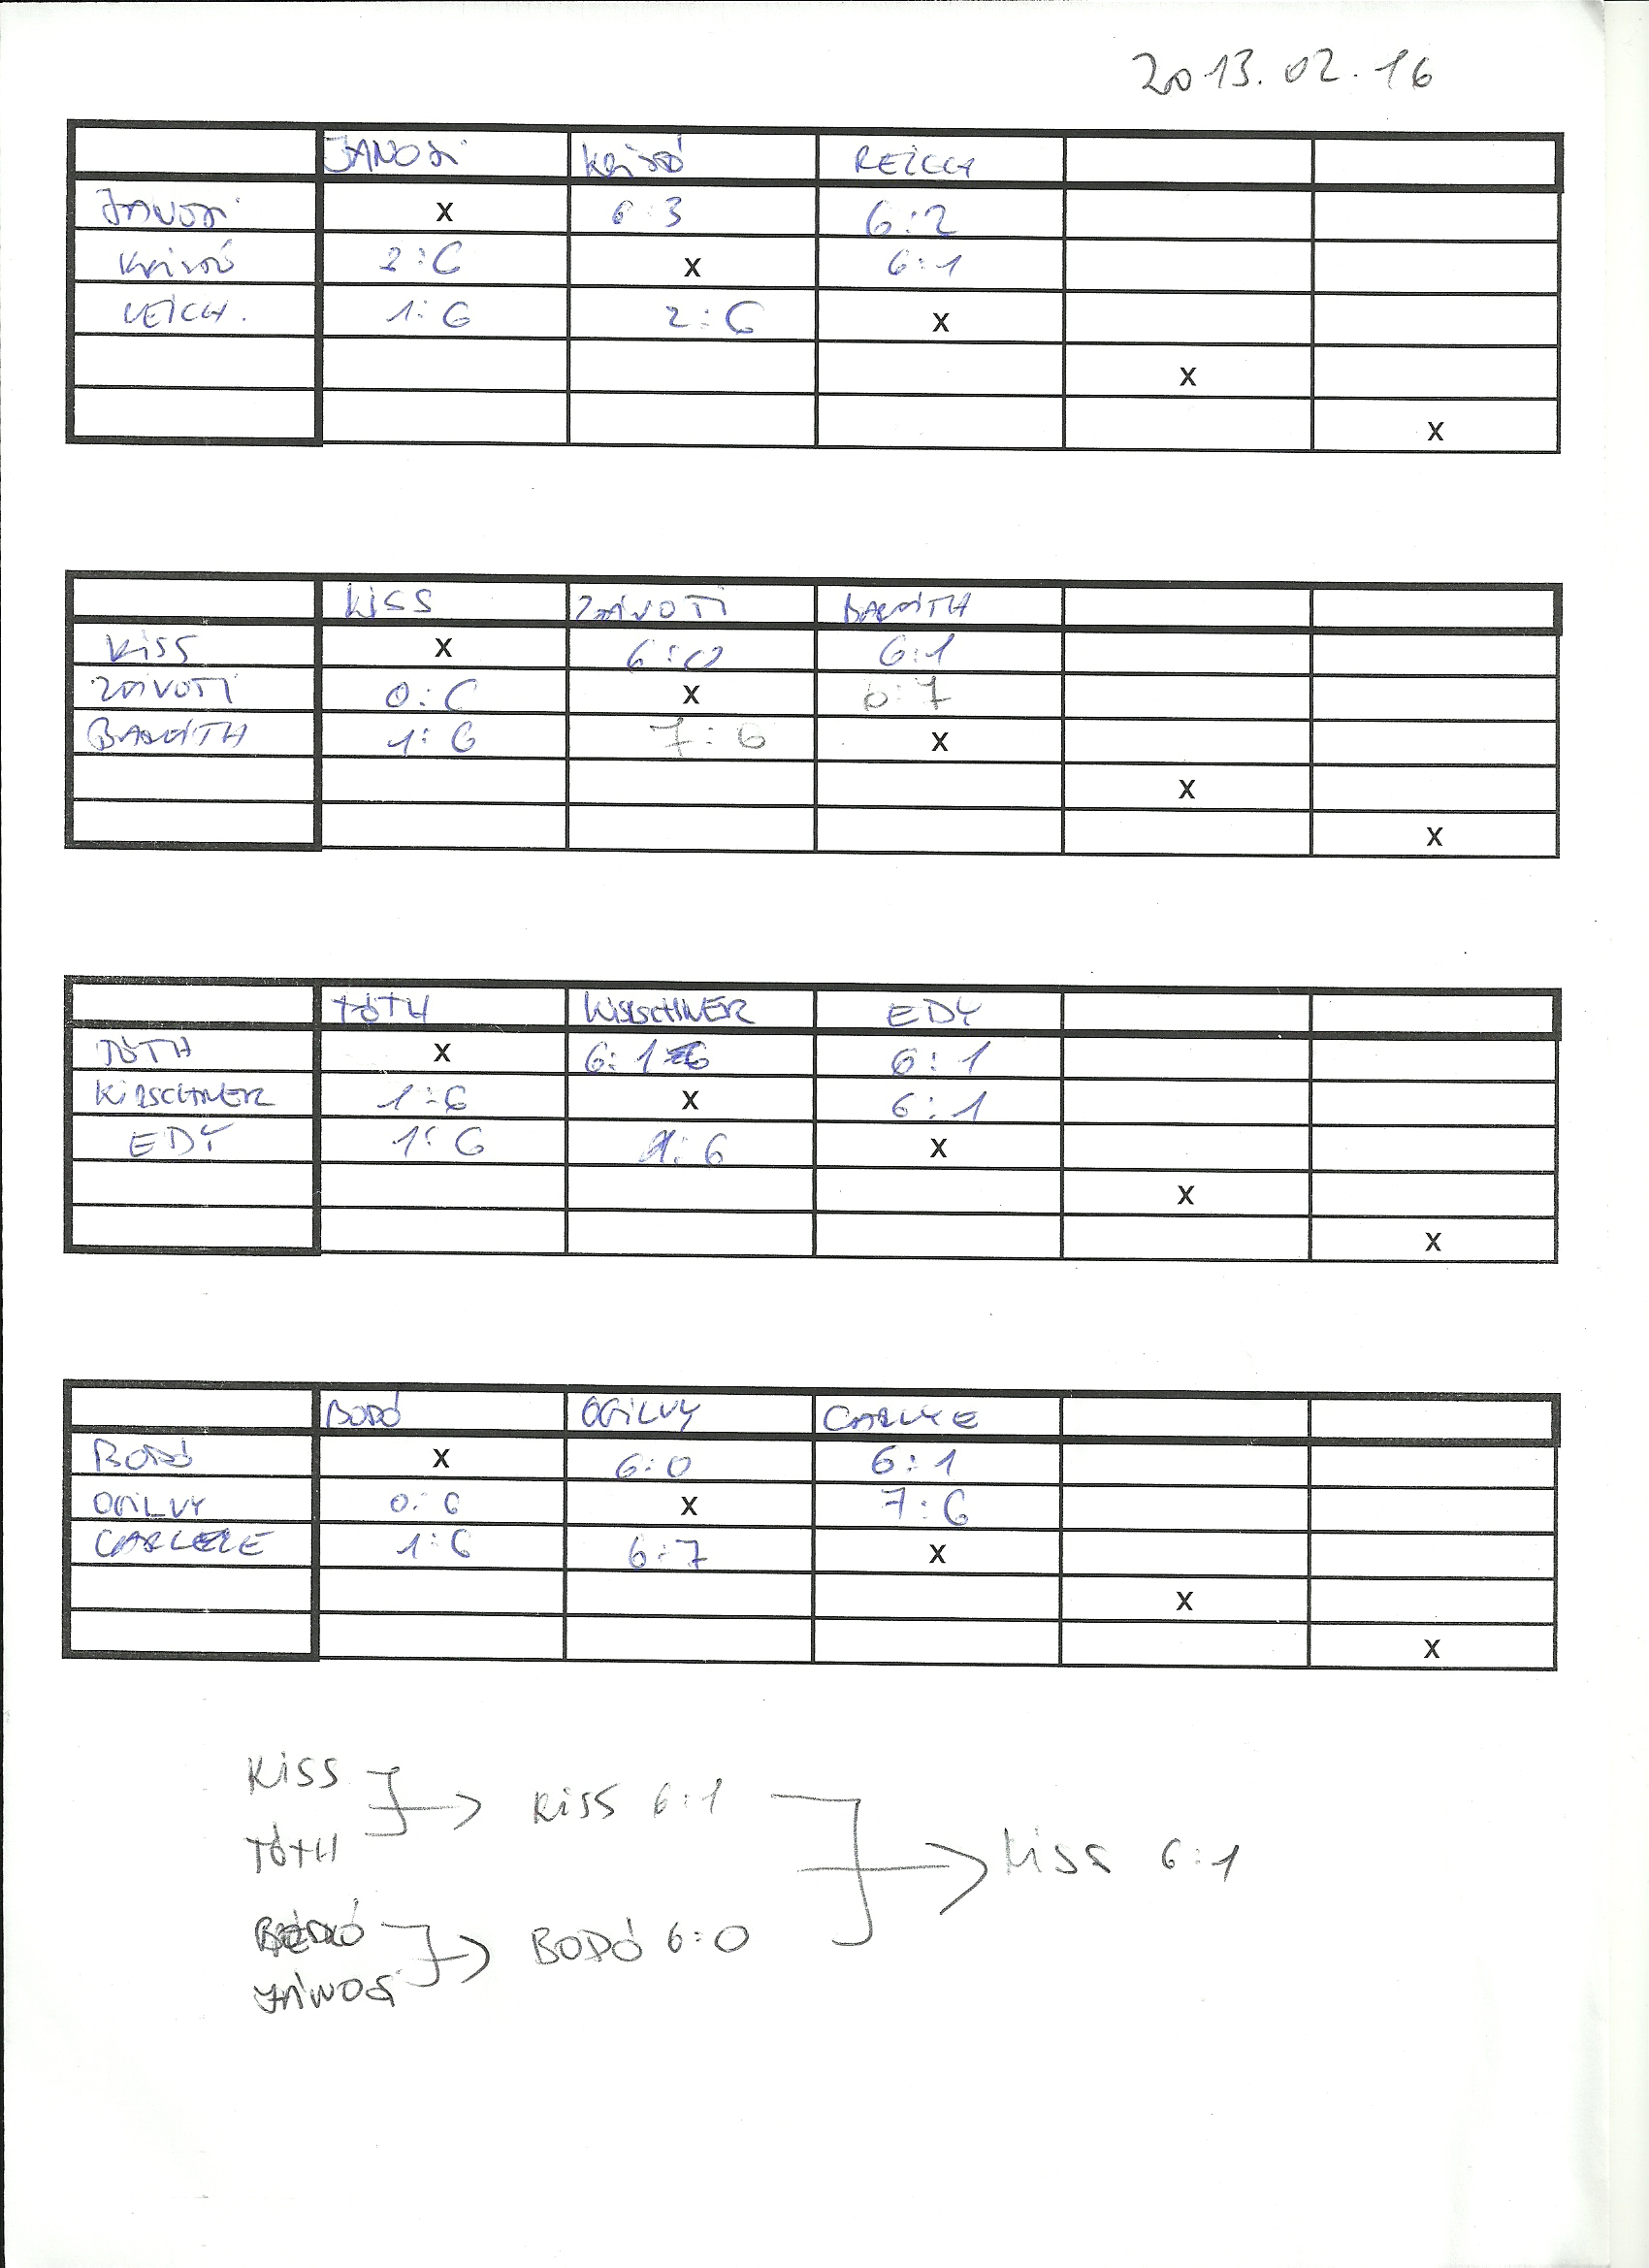 2013.02.16
JANOSI KRISTÓ REICH
JÁNOSI x 6:3 6:2
KRISTÓ 2:6 x 6:1
REICH. 1:6 2:6 x
x
x
KISS ZÁVOTI BARÁTH
KISS x 6:0 6:1
ZÁVOTI 0:6 x 6:7
BARÁTH 1:6 7:6 x
x
x
TÓTH KIRSCHNER EDY
TÓTH x 6:1 6:1
KIRSCHNER 1:6 x 6:1
EDY 1:6 1:6 x
x
x
BODÓ OGILVY CARLYLE
BODÓ x 6:0 6:1
OGILVY 0:6 x 7:6
1:6 6:7 x
x
x
KISS
KISS 6:1
TÓTH
KISS 6:1
BODÓ 6:0
JÁNOSI